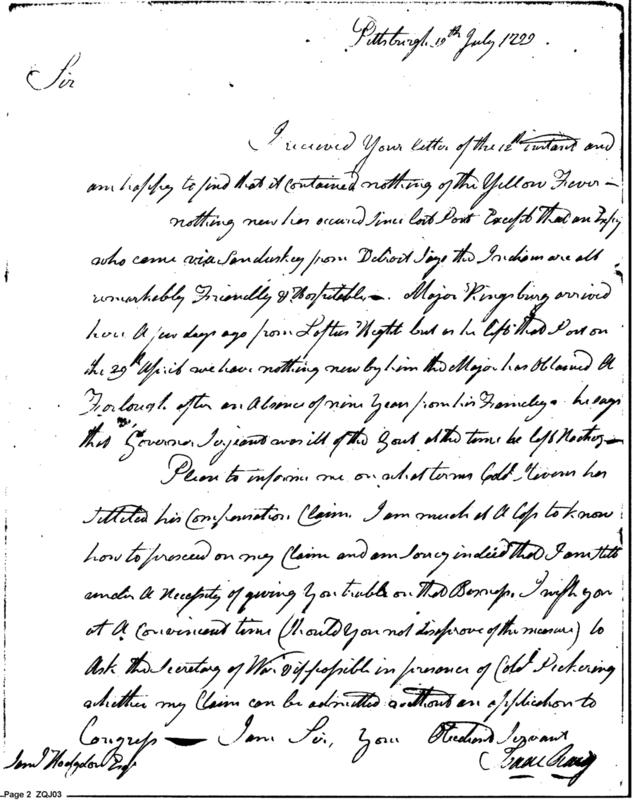 Pittsburgh 19th July 1799.
Sir
I received Your letter of the 12th instant and
am happy to find that it contained nothing of the Yellow Fever —
nothing new has occured since last Post Except that an
who came via Sandusky from Detroit Says the Indians are all
remarkably Friendly & Hospitable —. Major Kingsbury arrived
here A few days ago from Loftus Hight but as he left that Post on
the 29th April we have nothing new by him the Major has Obtained A
Forlough after an Absence of nine Years from his Family he says
that Governor Serjeant was ill of the Gout at the time he left
Please to informe me on what terms Colol. Stevens has
settled his Compensation Claim. I am much at A loss to know
how to proceed on my Claim and am Sorry indeed that I am Still
under A Necessity of giving You trouble on that Business I wish you
at A Convinient time (Should You not disaprove of the measure) to
Ask the Secretary of War & if possible in presence of Colol. Pickering
whether my Claim can be admitted without an application to
Congress — I am Sir, Your Obedient Servant
Isaac Craig
Saml Hodgdon Esqr
Page 2 ZQJ03